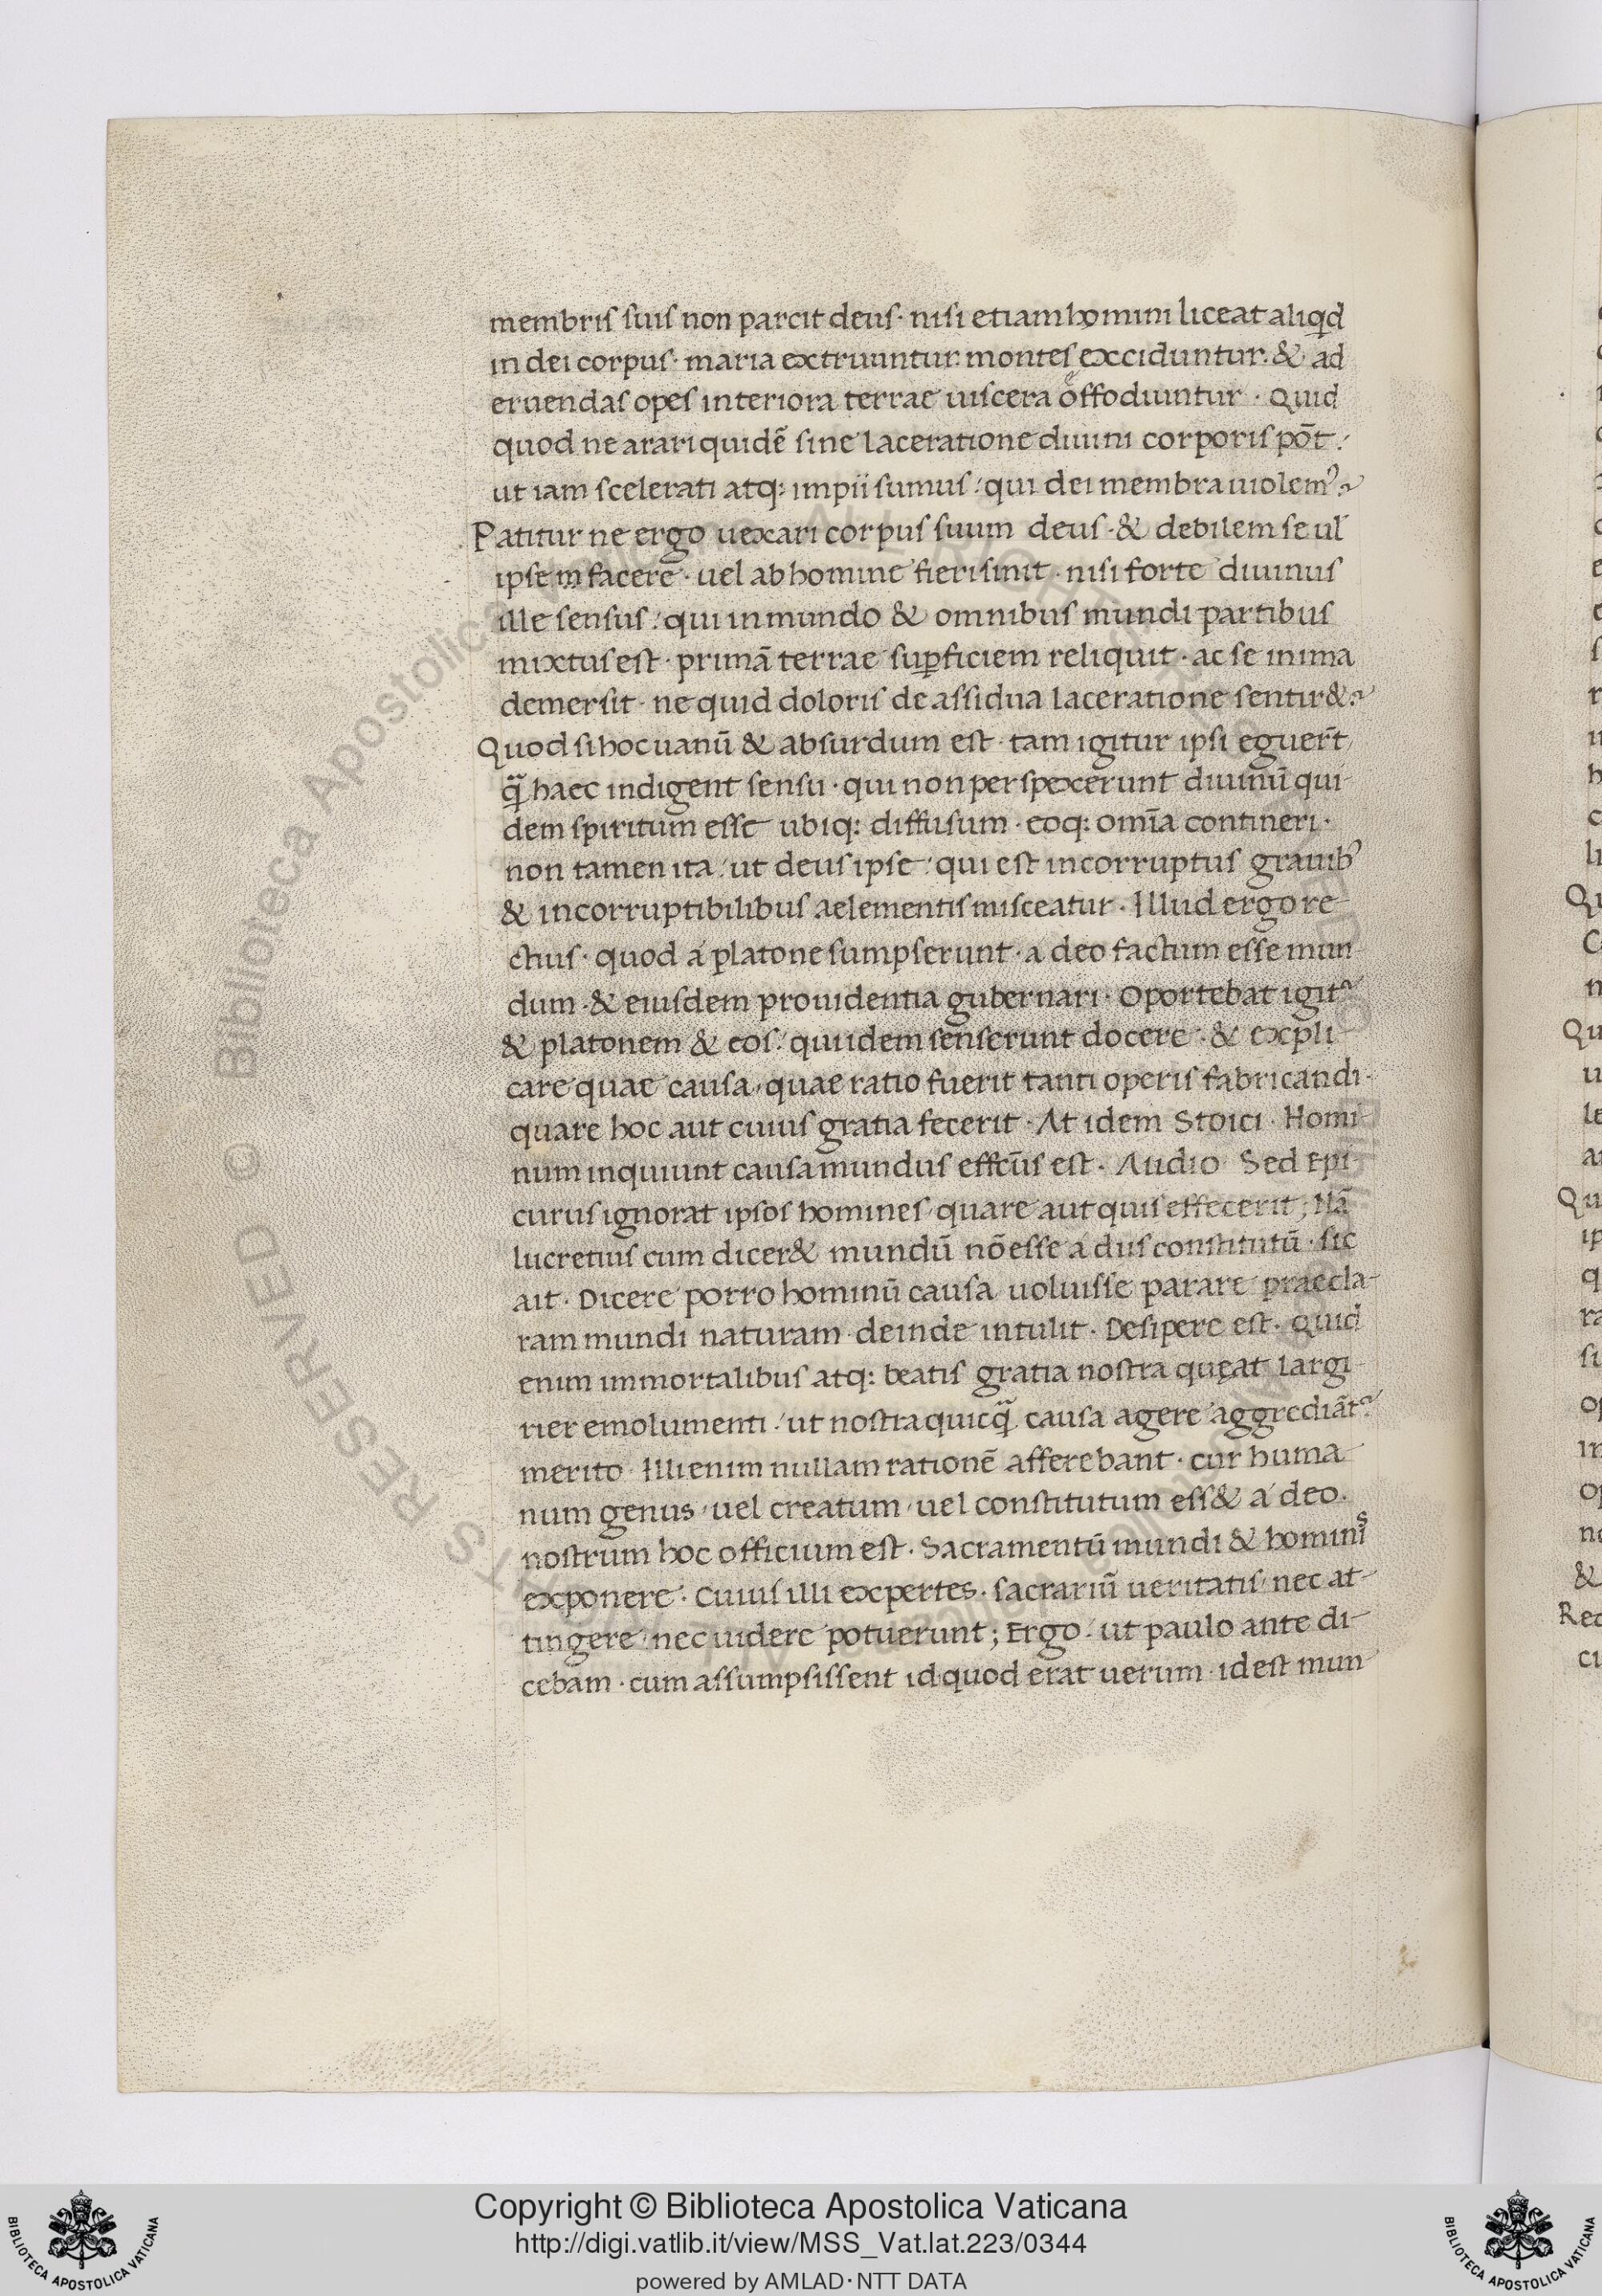 membris suis non parcit deus· nisi etiam homini liceat aliqd
in dei corpus· maria extruuntur· montes exciduntur· & ad
eruendas opes interiora terrae uiscera offodiuntur · Quid
quod ne arari quidē sine laceratione diuini corporis pōt·
ut iam scelerati atq: impii sumus· qui dei membra uiolem⁹?
Patitur ne ergo uexari corpus suum deus· & debilem se ul̄
ipsem facere · uel ab homine fieri sinit · nisi forte diuinus
ille sensus· qui in mundo & omnibus mundi partibus
mixtus est · primā terrae suꝑficiem reliquit · ac se in ima
demersit · ne quid doloris de assidua laceratione sentir&?
Quod si hoc uanū & absurdum est · tam igitur ipsi eguer̄t
q̄ haec indigent sensu · qui non perspexerunt diuinū qui-
dem spiritum esse ubiq: diffusum · eoq: omīa contineri ·
non tamen ita· ut deus ipse· qui est incorruptus grauib⁹
& incorruptibilibus aelementis misceatur · Illud ergo re-
ctius · quod á platone sumpserunt · a deo factum esse mun-
dum · & eiusdem prouidentia gubernari · Oportebat igit²
& platonem & eos· qui idem senserunt docere · & expli-
care quae causa, quae ratio fuerit tanti operis fabricandi·
quare hoc aut cuius gratia fecerit · At idem Stoici · Homi-
num inquiunt causa mundus effcūs est · Audio· Sed Epi-
curus ignorat ipsos homines· quare aut quis effecerit; Nā
lucretius cum dicer& mundū nō esse a diis constitutū · sic
ait · Dicere porro hominū causa uoluisse parare praecla-
ram mundi naturam· deinde intulit · Desipere est · Quid
enim immortalibus atq: beatis gratia nostra quęat largi-
rier emolumenti· ut nostra quicq̄ causa agere aggrediāt²
merito· Illi enim nullam rationē afferebant · cur huma-
num genus· uel creatum· uel constitutum ess& á deo.
nostrum hoc officium est · Sacramentū mundi & hominis
exponere · Cuius illi expertes · sacrariū ueritatis nec at-
tingere· nec uidere potuerunt; Ergo· ut paulo ante di-
cebam · cum assumpsissent id quod erat uerum· id est mun-
© Biblioteca Apostolica Vaticana
Copyright © Biblioteca Apostolica Vaticana
http://digi.vatlib.it/view/MSS_Vat.lat.223/0344
powered by AMLAD·NTT DATA
BIBLIOTECA APOSTOLICA VATICANA
BIBLIOTECA APOSTOLICA VATICANA